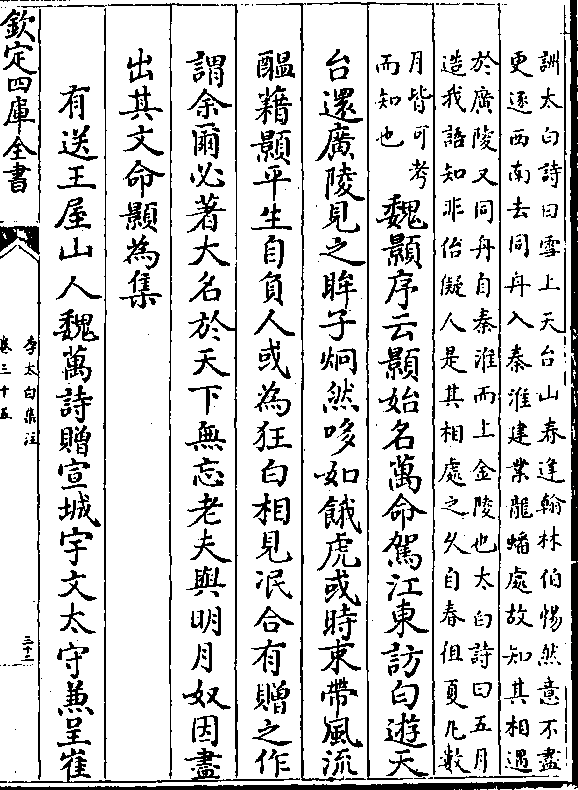 詶太白詩曰雪上天台山春逢翰林伯惕然意不盡
更逐西南去同舟入秦淮建業龍蟠處故知其相遇
於廣陵又同舟自秦淮而上金陵也太白詩曰五月
造我語知非佁儗人是其相處之久自春徂夏凡數
月皆可考
而知也
魏顥序云顥始名萬命駕江東訪白遊天
台還廣陵見之眸子炯然哆如餓虎或時束帶風流
醖藉顥平生自負人或為狂白相見泯合有贈之作
謂余爾必著大名於天下無忘老夫與明月奴因盡
出其文命顥為集
有送王屋山人魏萬詩贈宣城宇文太守兼呈崔
欽定四庫全書
李太白集注
卷三十五
三十二